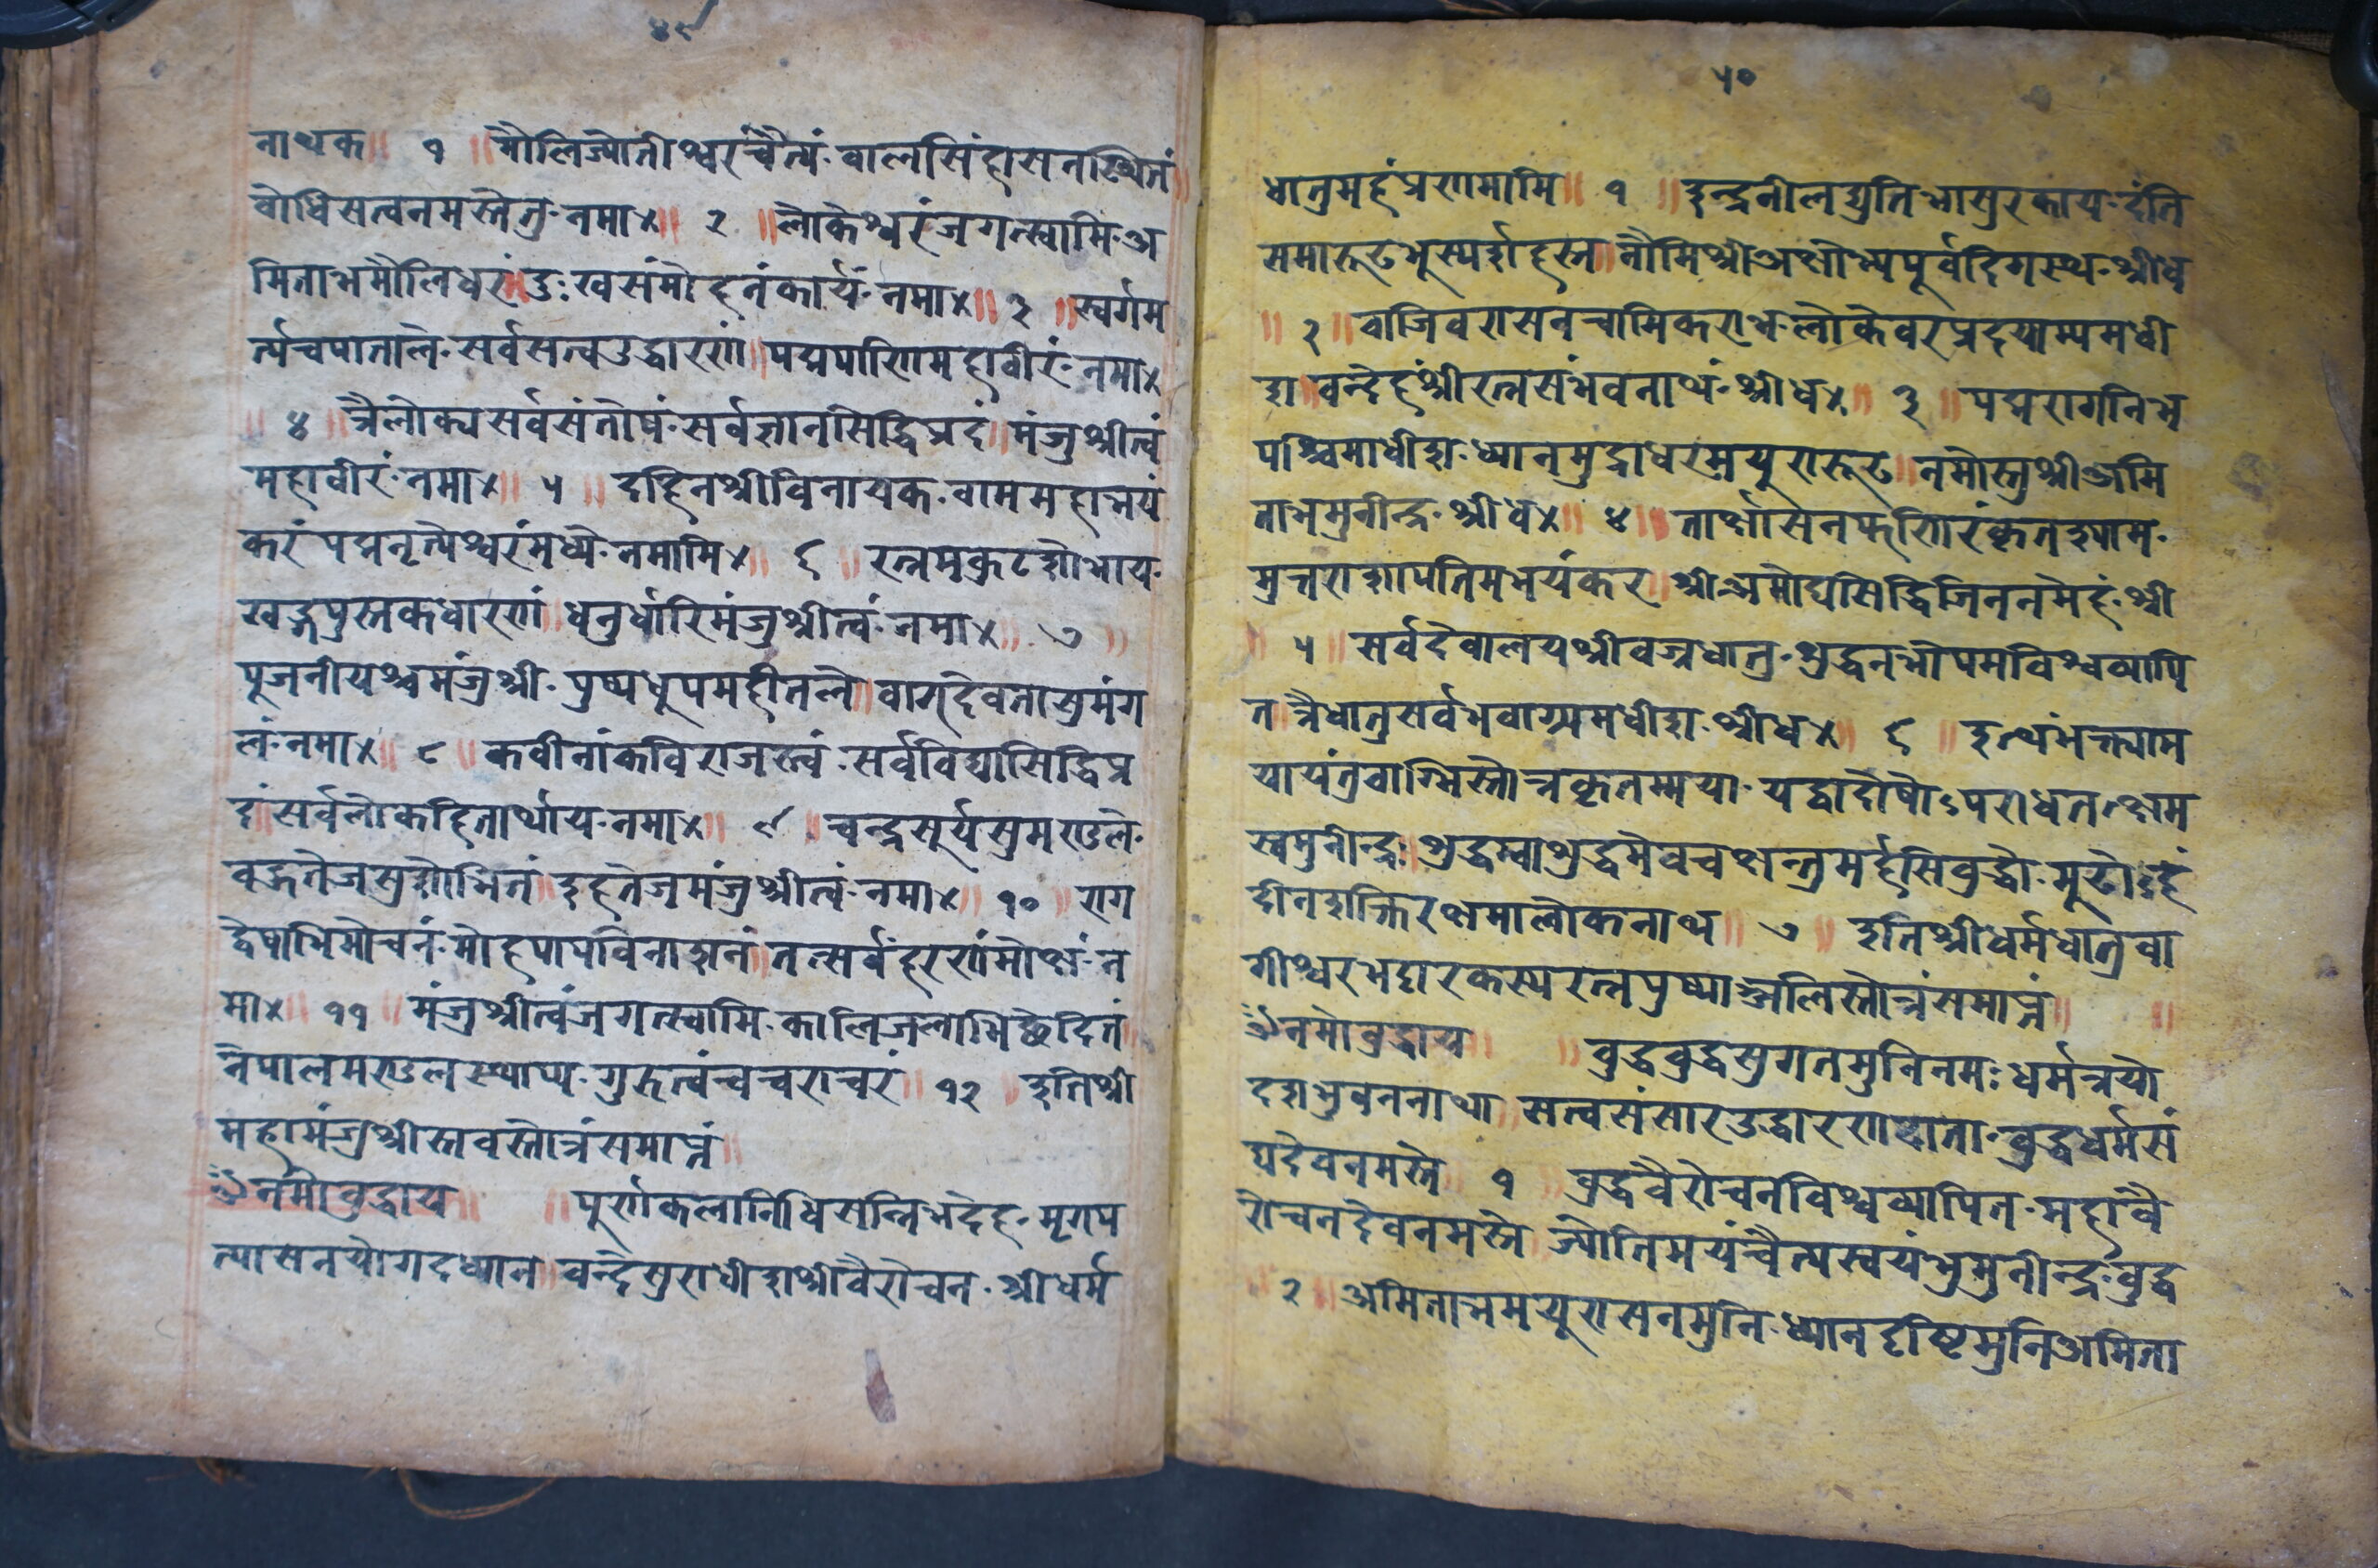 ४९
नाथक ॥ १ ॥ मौलिज्योतीश्वरंचैत्यं · वालसिंहासनस्थितं ॥
वोधिसत्वनमस्तेतु · नमा४ ॥ २ ॥ लोकेश्वरंजगत्स्वामि · अ
मिताभमौलिधरं ॥ दुःखसंमोहनंकार्यं · नमा४ ॥ ३ ॥ स्वर्गम
र्त्यचपाताले · सर्वसत्वउद्धारणं ॥ पद्मपाणिमहावीरं · नमा४
॥ ४ ॥ त्रैलोक्यसर्वसंतोषं · सर्वज्ञानसिद्धिप्रदं ॥ मंजुश्रीत्वं
महावीरं · नमा४ ॥ ५ ॥ दहिनश्रीविनायक · वाममहाभयं
करं पद्मनृत्येश्वरंमध्ये · नमामि४ ॥ ६ ॥ रत्नमुकुटशोभाय ·
खड्गपुस्तकधारणं ॥ धनुर्धारिमंजुश्रीत्वं · नमा४ ॥ ७ ॥
पूजनीयश्चमंजुश्री · पुष्पधूपमहीतले ॥ वाग्देवतासुमंग
लं · नमा४ ॥ ८ ॥ कवीनांकविराजस्त्वं · सर्वविद्यासिद्धिप्र
दं ॥ सर्वलोकहितार्थाय · नमा४ ॥ ९ ॥ चन्द्रसूर्यसुमण्डले ·
वुद्धतेजसुशोभितं ॥ दहतेजमंजुश्रीत्वं · नमा४ ॥ १० ॥ राग
द्वेषाभिमोचनं · मोहपापविनाशनं ॥ तत्सर्वंहरणंमोक्षं · न
मा४ ॥ ११ ॥ मंजुश्रीत्वंजगत्स्वामि · कालिजलाभिछेदितं ॥
नेपालमण्डलस्थाप्य · गुरुत्वंचचराचरं ॥ १२ ॥ इतिश्री
महामंजुश्रीस्तवस्तोत्रंसमाप्तं ॥
ॐनमोवुद्धाय ॥ ॥ पूर्णकलानिधिसन्निभदेह · मृगप
त्यासनयोगदध्यान ॥ वन्देसुराधीशश्रीवैरोचन · श्रीधर्म
५०
धातुमहंप्रणमामि ॥ १ ॥ इन्द्रनीलद्युतिभासुरकाय · दंति
समारूढभूस्पर्शहस्त ॥ नौमिश्रीअक्षोभ्यपूर्वदिगस्थ · श्रीध४
॥ २ ॥ वाजिवरासनचामिकराभ · लोकेवरप्रदयाम्यमधी
श ॥ वन्देहंश्रीरत्नसंभवनाथं · श्रीध४ ॥ ३ ॥ पद्मरागनिभ
पश्चिमाधीश · ध्यानमुद्राधरमयुरारूढ ॥ नमोस्तुश्रीअमि
ताभमुनीन्द्र · श्रीध४ ॥ ४ ॥ तार्क्षासनफणिरंकृतश्याम ·
मुत्तराशापतिमभयंकर ॥ श्रीअमोघसिद्धिजिननमेहं · श्री
॥ ५ ॥ सर्वदेवालयश्रीवज्रधातु · शुद्धनभोपमविश्वव्यापि
त ॥ त्रैधातुसर्वभवाग्र्यमधीश · श्रीध४ ॥ ६ ॥ इत्थंभक्त्याम
यायंतुवाग्भिस्तोत्रकृतम्मया · यद्वादोषोऽपराधतत्क्षम
स्वमुनीन्द्रः ॥ शुद्धम्वाशुद्धमेवचक्षन्तुमर्हसिवुद्धो · मूढोऽहं
दीनशक्तिरक्षमालोकनाथ ॥ ७ ॥ इतिश्रीधर्मधातुवा
गीश्वरभट्टारकस्यरत्नपुष्पाञ्जलिस्तोत्रंसमाप्तं ॥ ॥
ॐनमोवुद्धाय ॥ ॥ वुद्धवुद्धसुगतमुनिनमः धर्मत्रयो
दशभुवननाथा ॥ सत्वसंसारउद्धारणदाता · वुद्धधर्मसं
घदेवनमस्ते ॥ १ ॥ वुद्धवैरोचनविश्वव्यापित · महावै
रोचनदेवनमस्ते ॥ ज्योतिमयंचैत्यस्वयंभुमुनीन्द्र · वुद्ध
॥ २ ॥ अमिताभमयुरासनमुनि · ध्यानदृष्टिमुनिअमिता